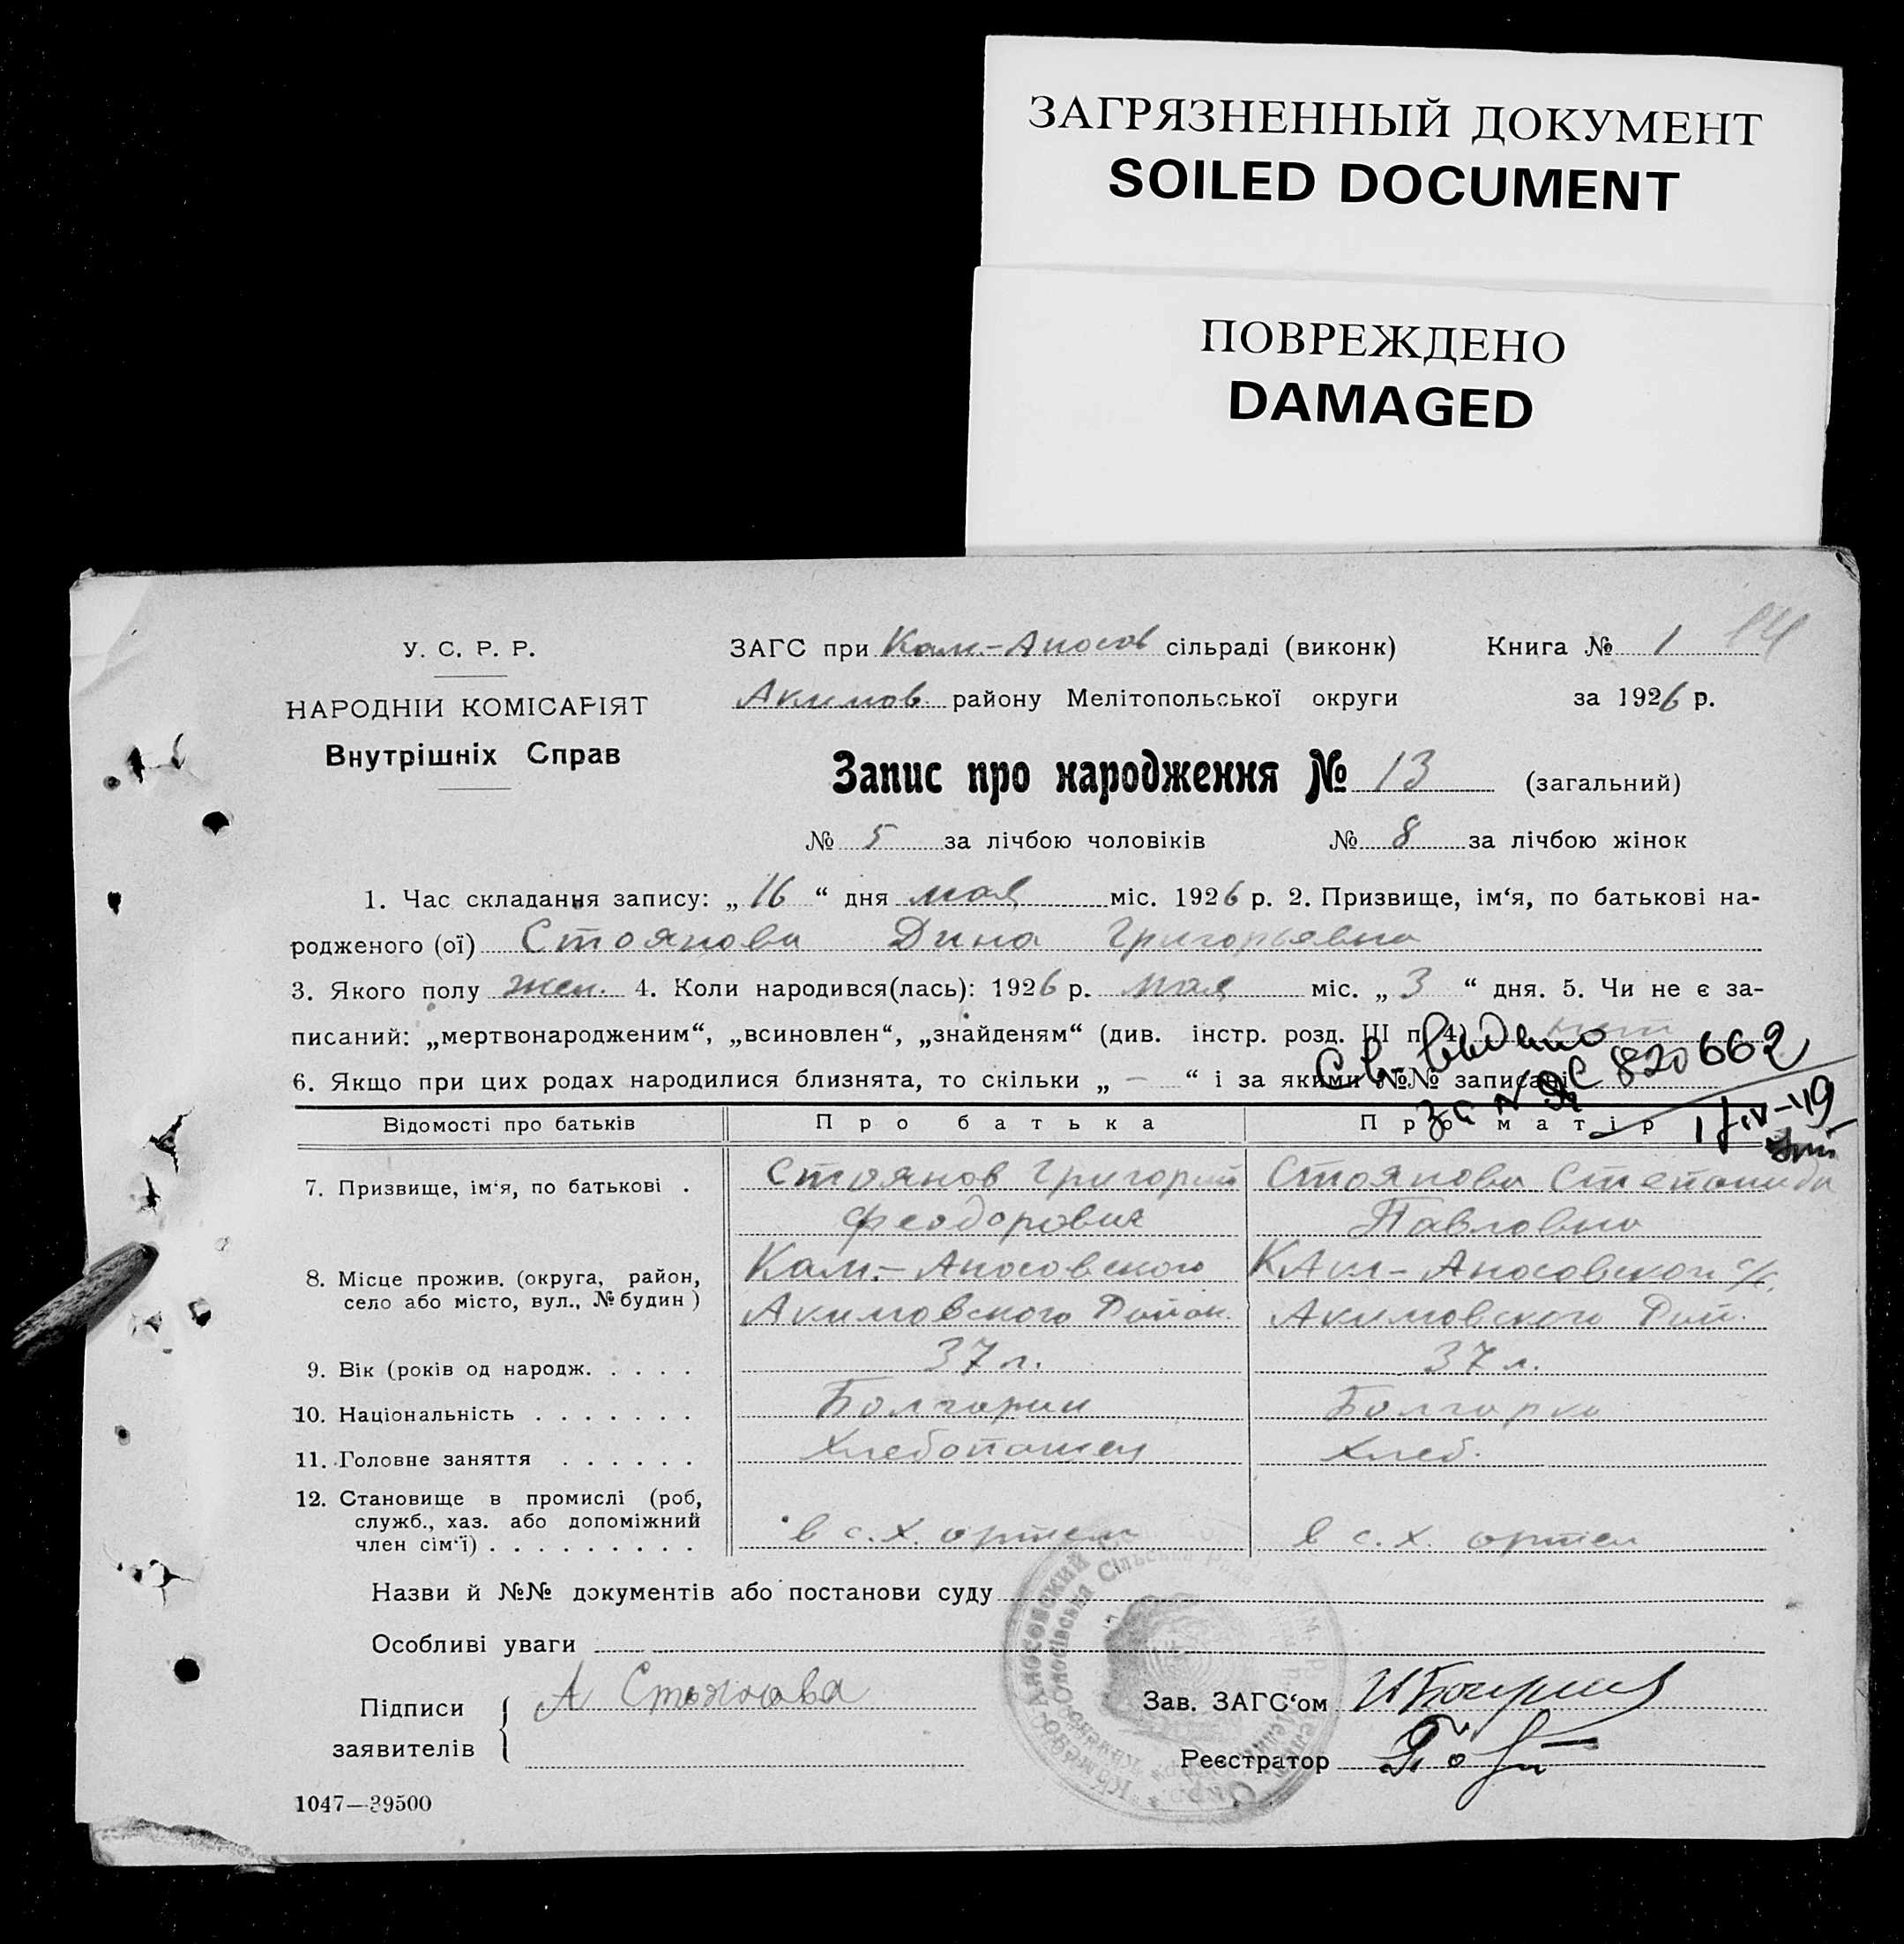 ЗАГРЯЗНЕННЫЙ ДОКУМЕНТ
SOILED DOCUMENT
ПОВРЕЖДЕНО
DAMAGED
У. С. Р. Р.
НАРОДНІЙ КОМІСАРІЯТ
Внутрішніх Справ
ЗАГС при Кам.-Аносов сільраді (виконк)
Акимов. району Мелітопольської округи
Книга № 1
за 1926 р.
Запис про народження № 13 (загальний)
№ 5 за лічбою чоловіків № 8 за лічбою жінок
1. Час складання запису: „ 16 “ дня мая міс. 1926 р. 2. Призвище, ім‘я, по батькові на-
родженого (ої) Стоянова Дина Григорьевна
3. Якого полу жен. 4. Коли народився(лась): 1926 р. мая міс. „ 3 “ дня. 5. Чи не є за-
писаний: „мертвонародженим“, „всиновлен“, „знайденям“ (див. інстр. розд. III п. 4) нет
6. Якщо при цих родах народилися близнята, то скільки „ – “ і за якими №№ записані
Св. выдано
за № ЯС 820662
Відомості про батьків Про батька Про матір
7. Призвище, ім‘я, по батькові . Стоянов Григорий Стоянова Степанида
Феодорович Павловна
8. Місце прожив. (округа, район, Кам.- Аносовского КАм- Аносовской с/с.
село або місто, вул., № будин) Акимовского Район. Акимовского Рай.
9. Вік (років од народж. . . . . 37 л. 37 л.
10. Національність . . . . . . . Болгарин Болгарка
11. Головне заняття . . . . . . Хлебопашец Хлеб.
12. Становище в промислі (роб,
служб., хаз. або допоміжний
член сім‘ї) . . . . . . . . . в с. х. артели в с. х. артели
Назви й №№ документів або постанови суду
Особливі уваги
Підписи
заявителів
А Стоянова
Зав. ЗАГС‘ом
Реєстратор
1047—39500